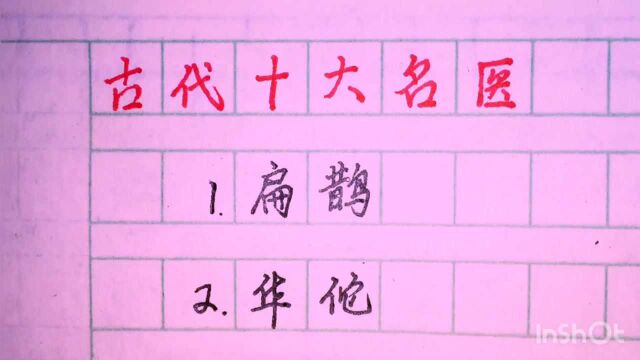 古代十大名医
1.扁鹊
2.华佗
InShot